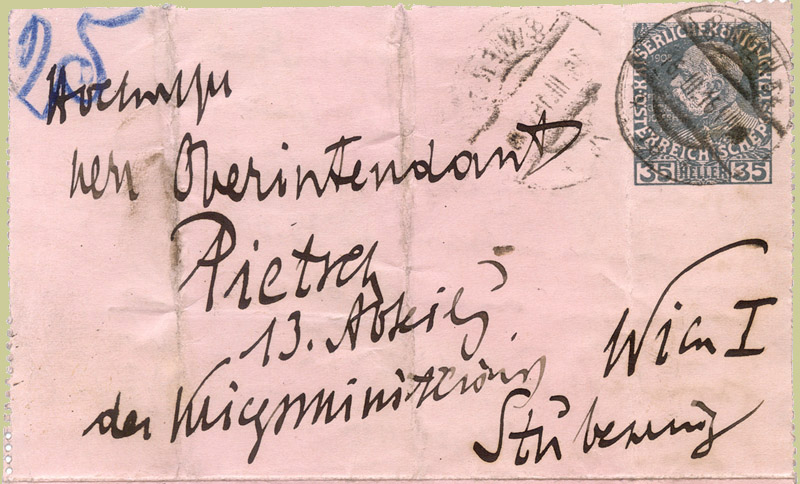 205
Hochwohl
Herrn Oberintendant
Pietsch
13. Abteilg
des Kriegsministeriums
Wien I
Stubenring
KAISERLICHE KÖNIGLICHE
ÖSTERREICHISCHE POST
1908
35 HELLER 35
WIEN
III